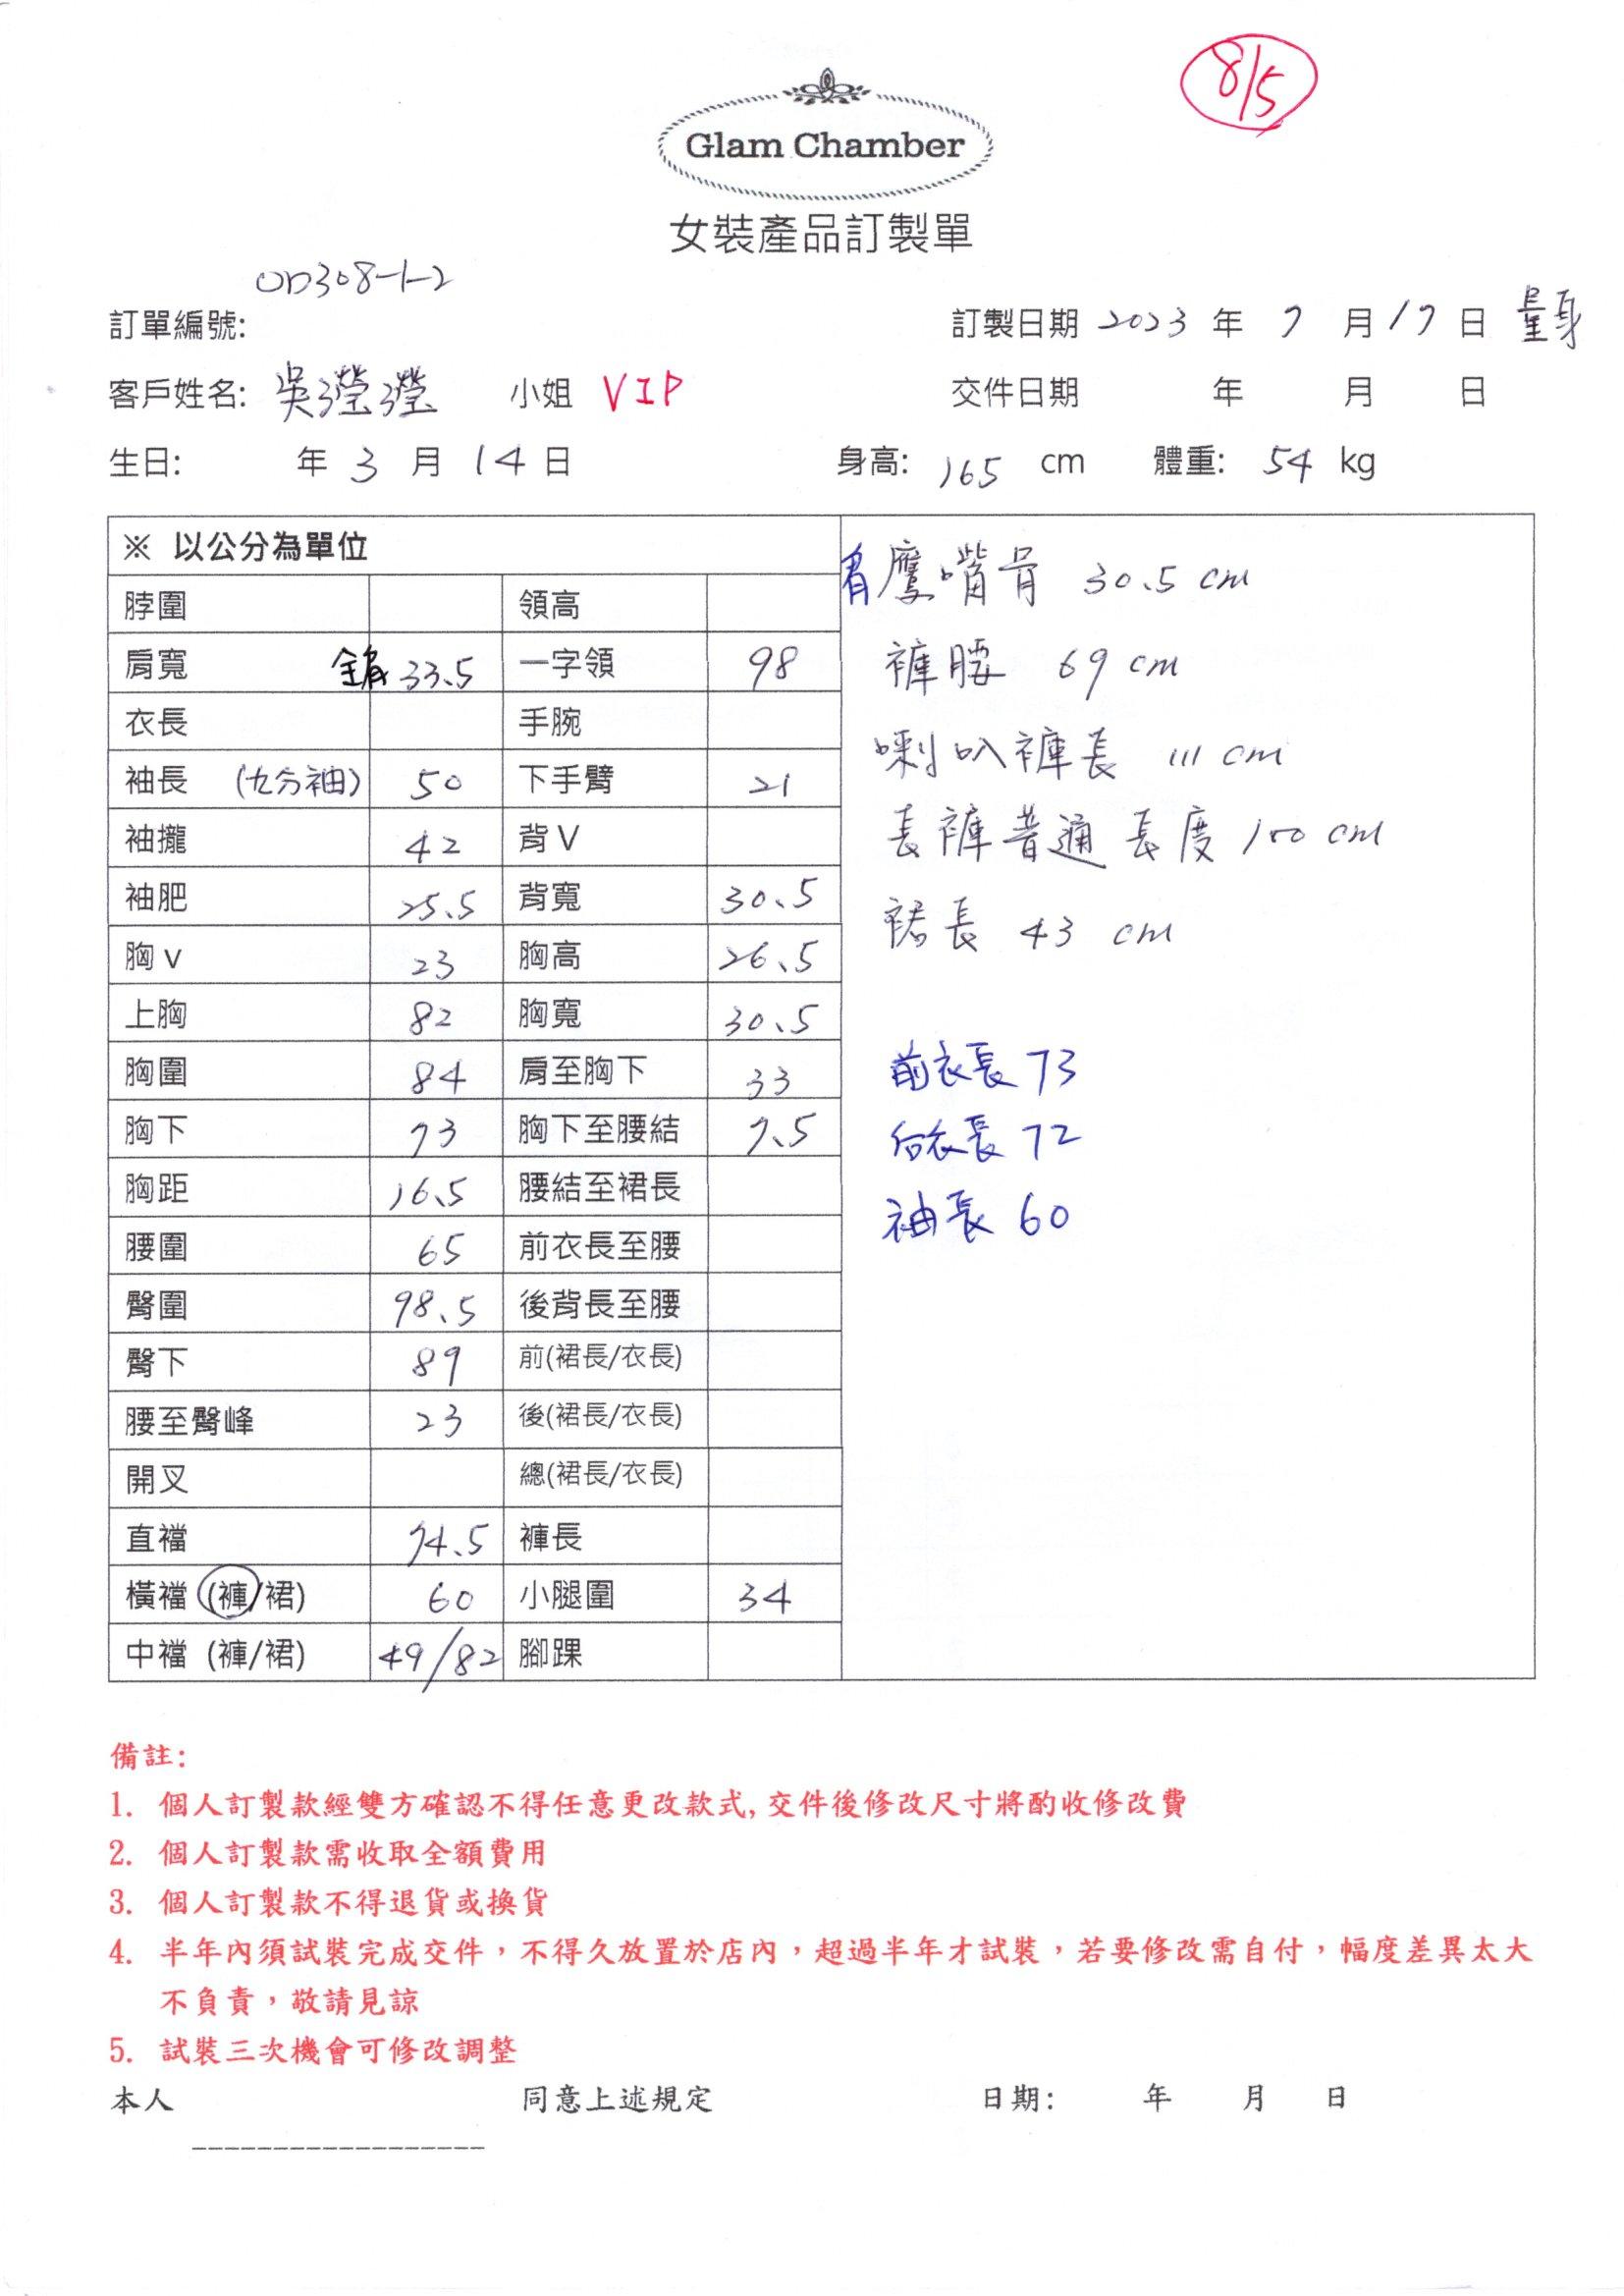 8/5
Glam Chamber
女裝產品訂製單
OD308-1-2
訂單編號: 訂製日期 2023 年 7 月 17 日 量身
客戶姓名: 吳瀅瀅 小姐 VIP 交件日期 年 月 日
生日: 年 3 月 14 日 身高: 165 cm 體重: 54 kg
※ 以公分為單位
脖圍 領高
肩寬 全肩 33.5 一字領 98
衣長 手腕
袖長 (九分袖) 50 下手臂 21
袖攏 42 背V
袖肥 25.5 背寬 30.5
胸v 23 胸高 26.5
上胸 82 胸寬 30.5
胸圍 84 肩至胸下 33
胸下 73 胸下至腰結 7.5
胸距 16.5 腰結至裙長
腰圍 65 前衣長至腰
臀圍 98.5 後背長至腰
臀下 89 前(裙長/衣長)
腰至臀峰 23 後(裙長/衣長)
開叉 總(裙長/衣長)
直襠 74.5 褲長
橫襠 (褲/裙) 60 小腿圍 34
中襠 (褲/裙) 49/82 腳踝
肩鷹嘴骨 30.5 cm
褲腰 69 cm
喇叭褲長 111 cm
長褲普通長度 100 cm
裙長 43 cm
前衣長 73
后衣長 72
袖長 60
備註:
1. 個人訂製款經雙方確認不得任意更改款式, 交件後修改尺寸將酌收修改費
2. 個人訂製款需收取全額費用
3. 個人訂製款不得退貨或換貨
4. 半年內須試裝完成交件，不得久放置於店內，超過半年才試裝，若要修改需自付，幅度差異太大
不負責，敬請見諒
5. 試裝三次機會可修改調整
本人 同意上述規定 日期: 年 月 日